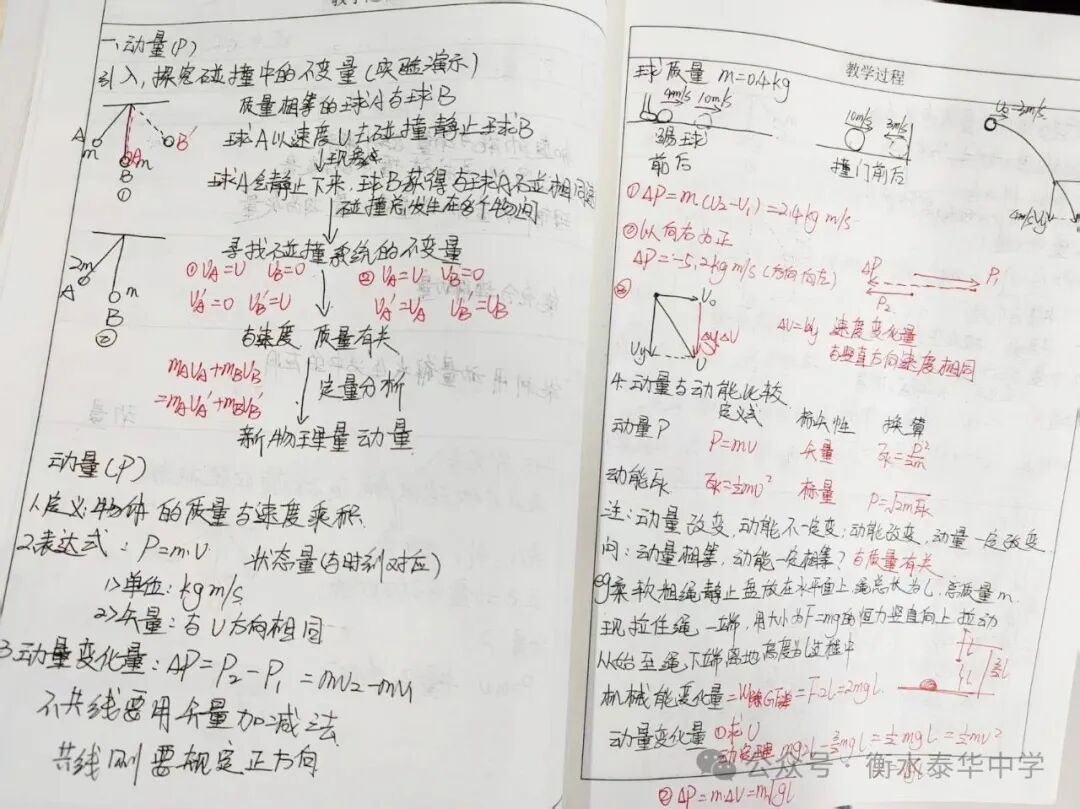 教学过程
一、动量(P)
引入，探究碰撞中的不变量(实验演示)
质量相等的球A与球B
球A以速度U去碰撞静止球B
↓现象
球A会静止下来，球B获得与球A碰撞相同
碰撞总发生在多个物间
寻找碰撞系统的不变量
A m B m B' ①
2m A m B ②
①UA=U UB=0 ②UA=U UB=0
UA'=0 UB'=U UA'=UA UB'=UB
与速度 质量有关
mAUA+mBUB
=mAUA'+mBUB'
定量分析
新物理量 动量
动量(P)
1.定义：物体的质量与速度乘积
2.表达式：P=m·U 状态量(与时刻对应)
1>单位：kg m/s
2>矢量：与U方向相同
3.动量变化量：ΔP=P2-P1=mU2-mU1
不共线要用矢量加减法
共线则要规定正方向
教学过程
球质量 m=0.4kg
4m/s 10m/s
踢球
前后
10m/s 3m/s
撞门前后
4m/s Uy
①ΔP=m(U2-U1)=2.4kg m/s
②以向右为正
ΔP=-5.2kg m/s(方向向左)
ΔP P1
P2
③
U0
Uy U
ΔU
ΔU=Uy 速度变化量
与竖直方向速度相同
4.动量与动能比较
定义式 标矢性 换算
动量P P=mU 矢量 Ek=P²/2m
动能Ek Ek=½mU² 标量 P=√2mEk
注：动量改变，动能不一定变；动能改变，动量一定改变
问：动量相等，动能一定相等？与质量有关
eg柔软粗绳静止盘放在水平面上，绳总长为L，总质量m.
现拉住绳一端，用大小为F=mg的恒力竖直向上拉动
从始至绳下端离地高度为L过程中
机械能变化量=W除G=F2L=2mgL
动量变化量 ①求U
动定理 mg2L-3/2mgL=½mgL=½mU²
②ΔP=mΔU=m√gL
公众号·衡水泰华中学